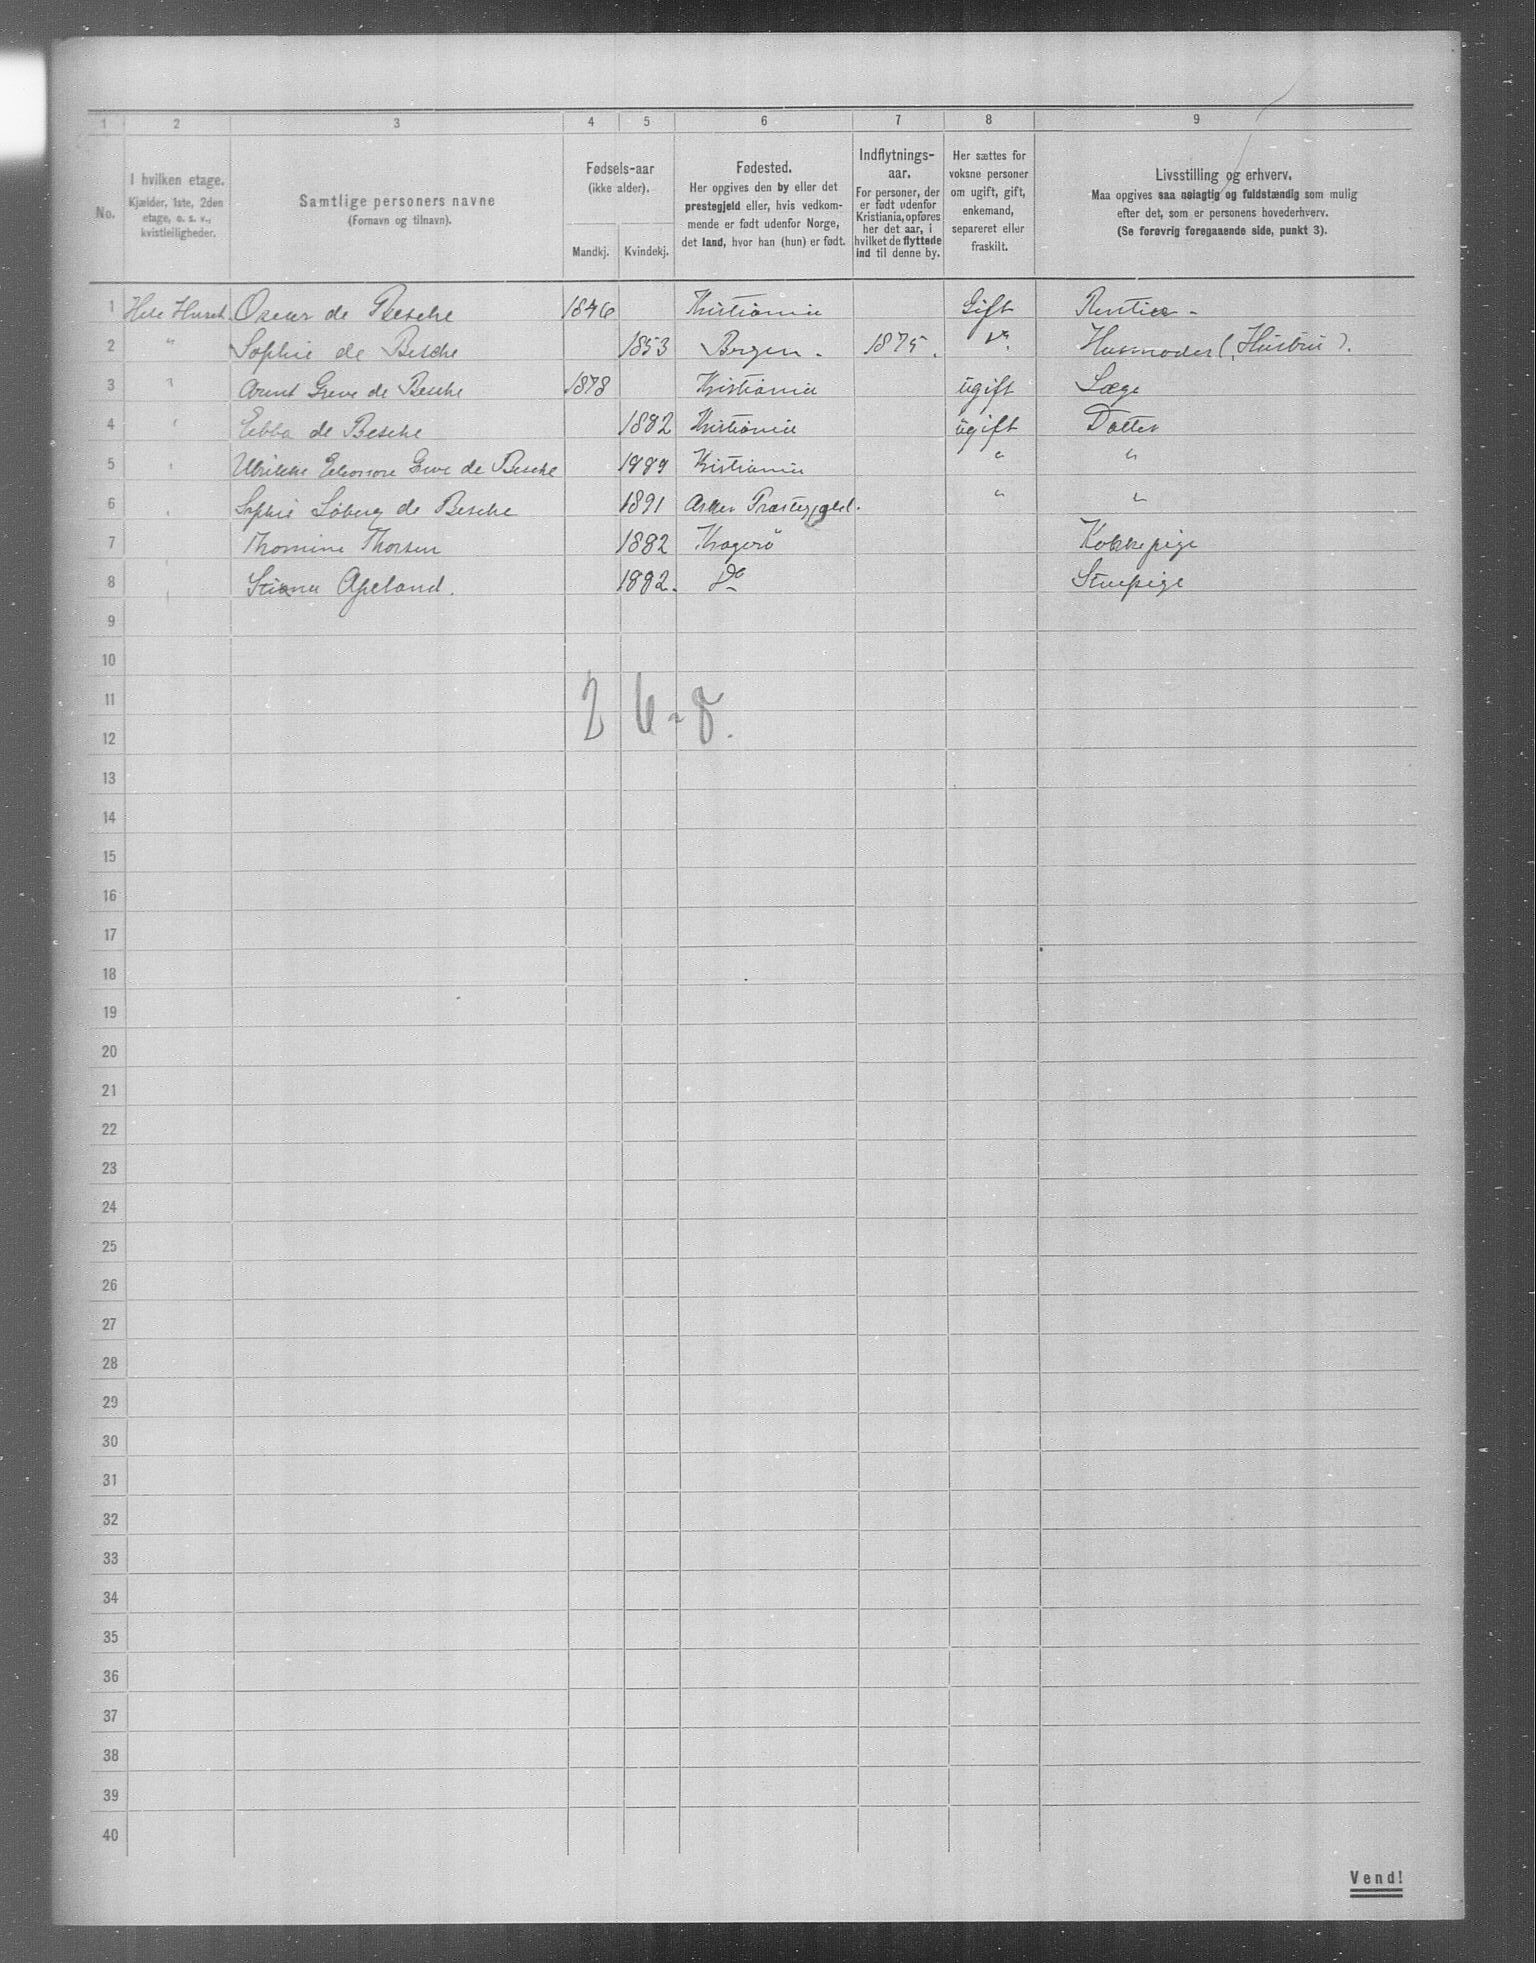 1 2 3 4 5 6 7 8 9
No.
I hvilken etage.
Kjælder, 1ste, 2den
etage, o. s. v.,
kvistleiligheder.
Samtlige personers navne
(Fornavn og tilnavn).
Fødsels-aar
(ikke alder).
Mandkj. Kvindekj.
Fødested.
Her opgives den by eller det
prestegjeld eller, hvis vedkom-
mende er født udenfor Norge,
det land, hvor han (hun) er født.
Indflytnings-
aar.
For personer, der
er født udenfor
Kristiania, opføres
her det aar, i
hvilket de flyttede
ind til denne by.
Her sættes for
voksne personer
om ugift, gift,
enkemand,
separeret eller
fraskilt.
Livsstilling og erhverv.
Maa opgives saa nøiagtig og fuldstændig som mulig
efter det, som er personens hovederhverv.
(Se forøvrig foregaaende side, punkt 3).
1 Hele Huset. Oscar de Besche 1846 Kristiania Gift Rentier -
2 " Sophie de Besche 1853 Bergen. 1875. Do Husmoder (Hustru).
3 " Arent Greve de Besche 1878 Kristiania ugift Læge
4 " Ebba de Besche 1882 Kristiania ugift Datter
5 " Ulrikke Eleonore Greve de Besche 1889 Kristiania " "
6 " Sophie Søberg de Besche 1891 Asker Præstegjeld. " "
7 Thomine Thorsen 1882 Kragerö Kokkepige
8 Apeland. 1882. Do Stuepige
9
10
11
12
2 6 - 8.
13
14
15
16
17
18
19
20
21
22
23
24
25
26
27
28
29
30
31
32
33
34
35
36
37
38
39
40
Vend!